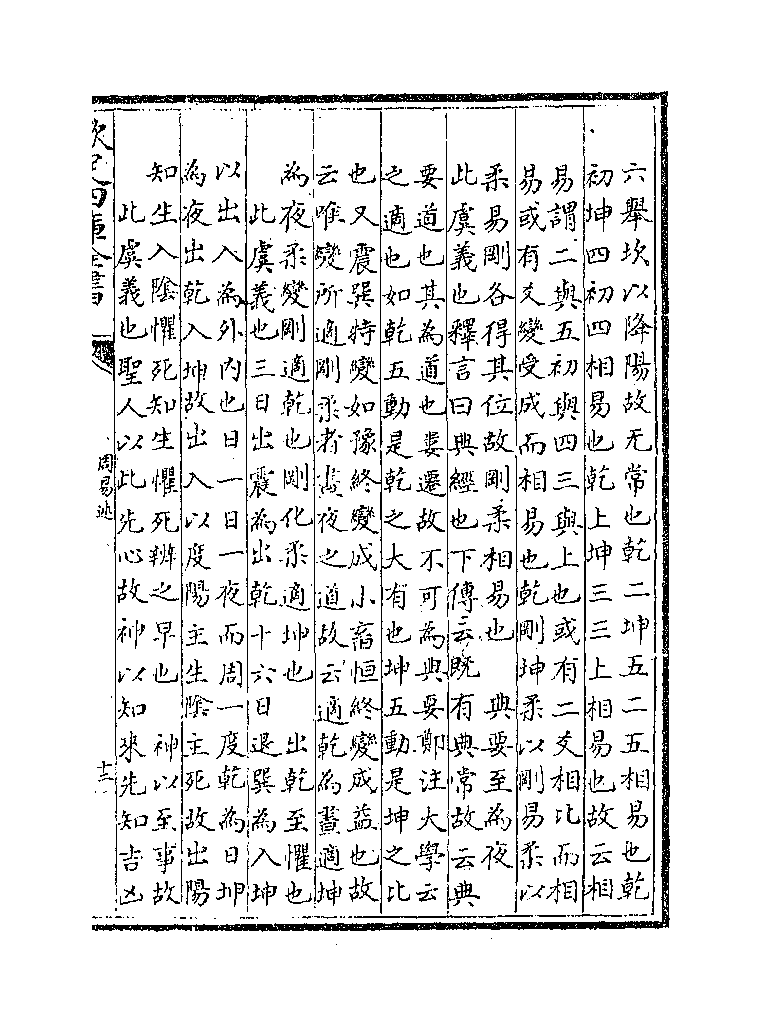 六舉坎以降陽故无常也乾二坤五二五相易也乾
初坤四初四相易也乾上坤三三上相易也故云相
易謂二與五初與四三與上也或有二爻相比而相
易或有爻變受成而相易也乾剛坤柔以剛易柔以
柔易剛各得其位故剛柔相易也 典要至為夜
此虞義也釋言曰典經也下傳云既有典常故云典
要道也其為道也婁遷故不可為典要鄭注大學云
之適也如乾五動是乾之大有也坤五動是坤之比
也又震巽特變如豫終變成小畜恒終變成益也故
云唯變所適剛柔者晝夜之道故云適乾為晝適坤
為夜柔變剛適乾也剛化柔適坤也 出乾至懼也
此虞義也三日出震為出乾十六日退巽為入坤
以出入為外內也日一日一夜而周一度乾為日坤
為夜出乾入坤故出入以度陽主生陰主死故出陽
知生入陰懼死知生懼死辨之早也 神以至事故
此虞義也聖人以此先心故神以知來先知吉凶
欽定四庫全書
周易述
十三